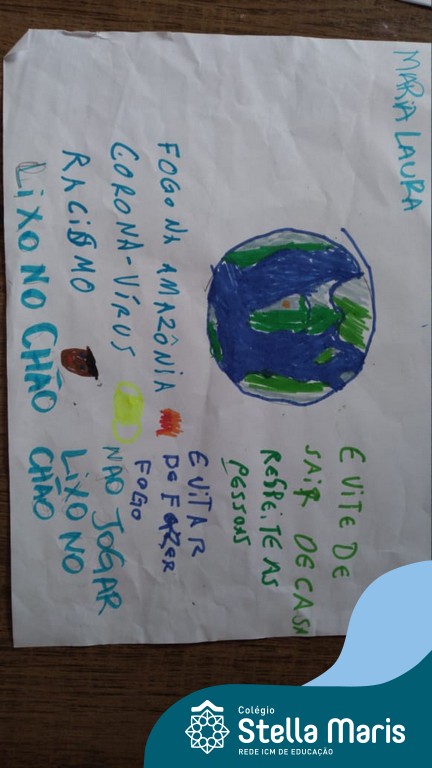 MARIA LAURA
FOGO NA AMAZÔNIA
CORONA-VÍRUS
RACISMO
LIXO NO CHÃO
EVITE DE
SAIR DE CASA
RESPEITE AS
PESSOAS
EVITAR
DE FAZER
FOGO
NÃO JOGAR
LIXO NO
CHÃO
Colégio
Stella Maris
REDE ICM DE EDUCAÇÃO